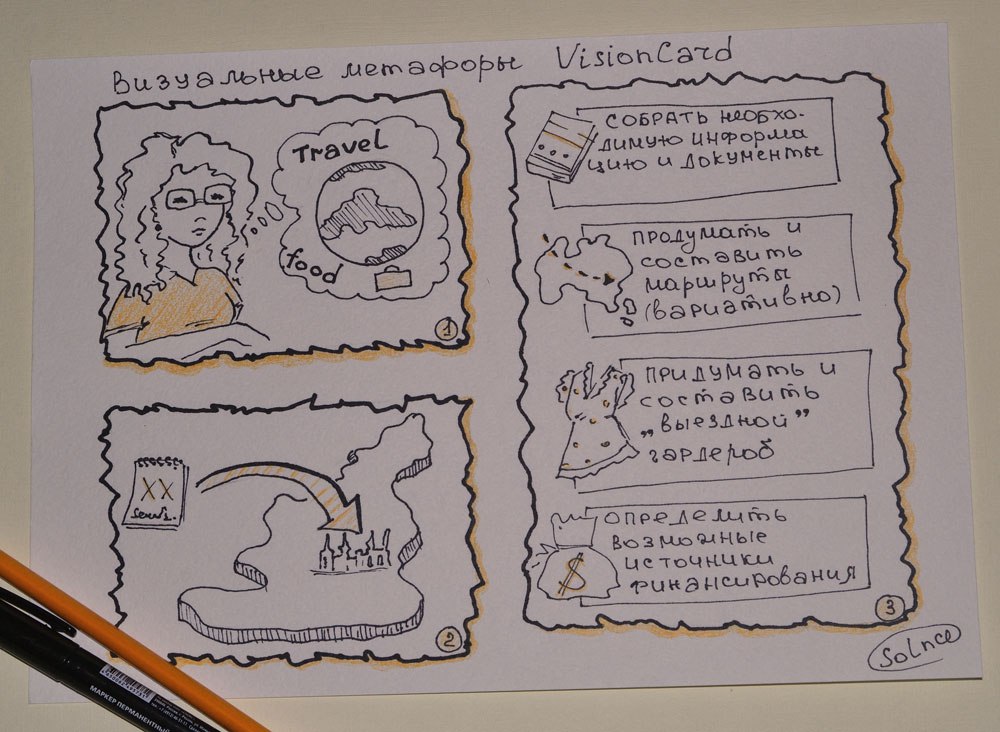 Визуальные метафоры VisionCard
Travel
food
1
XX
2
СОБРАТЬ НЕОБХО-
ДИМУЮ ИНФОРМА
ЦИЮ И ДОКУМЕНТЫ
ПРОДУМАТЬ И
СОСТАВИТЬ
МАРШРУТЫ
(ВАРИАТИВНО)
ПРИДУМАТЬ И
СОСТАВИТЬ
„ВЫЕЗДНОЙ”
ГАРДЕРОБ
$
ОПРЕДЕЛИТЬ
ВОЗМОЖНЫЕ
ИСТОЧНИКИ
ФИНАНСИРОВАНИЯ
3
Solnce
МАРКЕР ПЕРМАНЕНТНЫЙ